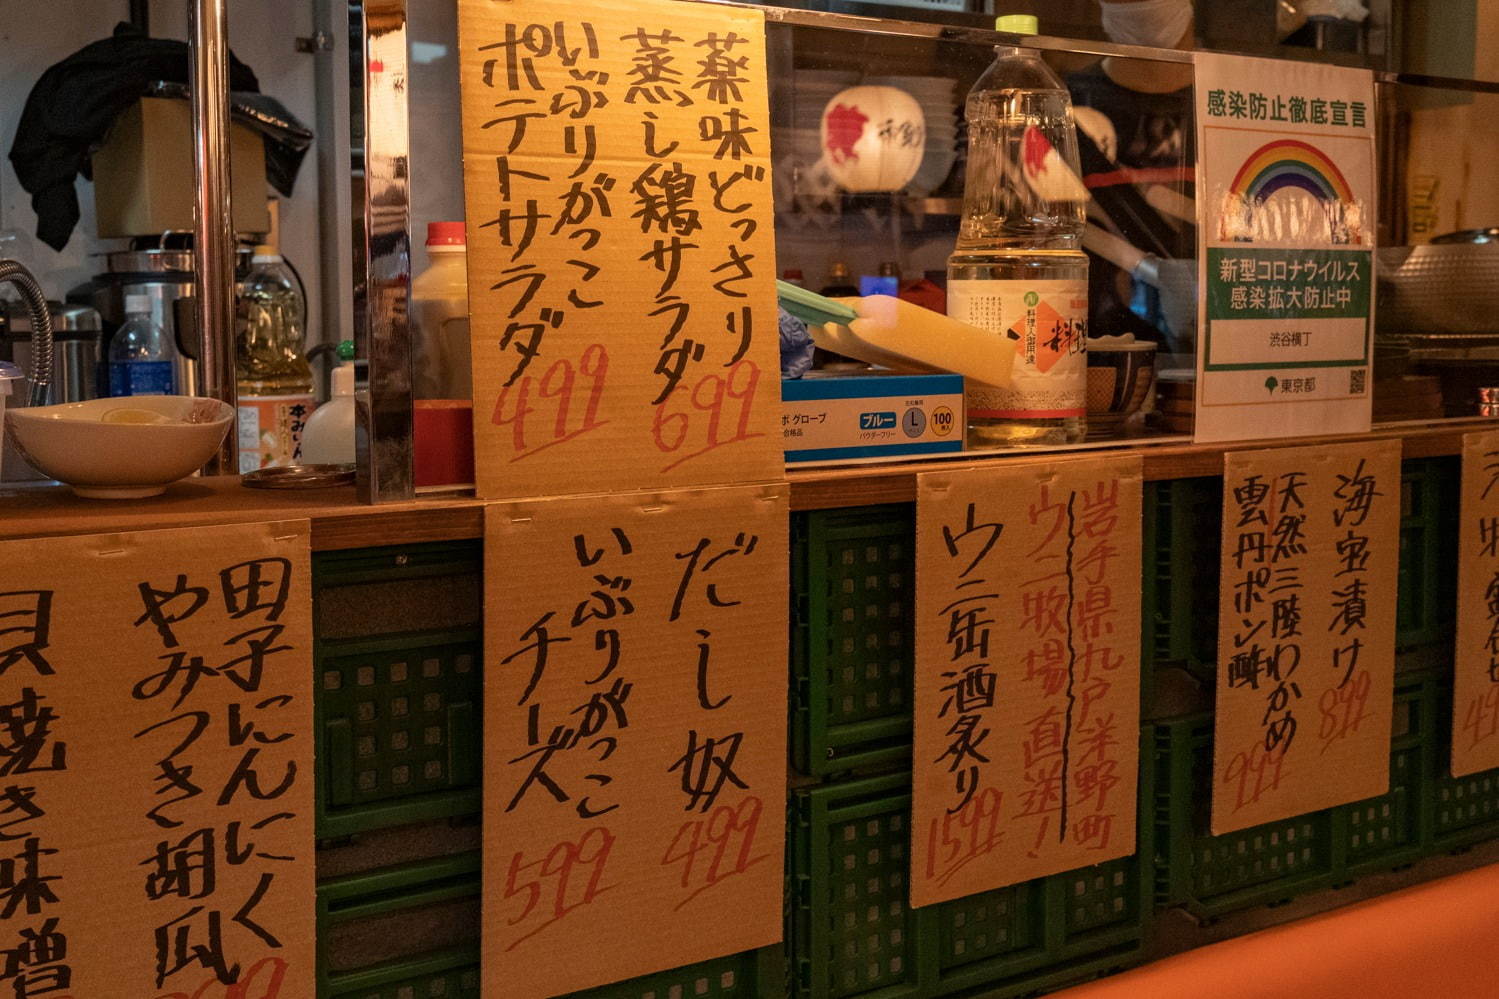 薬味どっさり
蒸し鶏サラダ
699
いぶりがっこ
ポテトサラダ
499
感染防止徹底宣言
新型コロナウイルス
感染拡大防止中
渋谷横丁
東京都
料理人御用達
料理
本みりん
グローブ
合格品
ブルー
パウダーフリー
L
100
田子にんにく
やみつき胡瓜
貝焼き味噌
だし奴
499
いぶりがっこ
チーズ
599
岩手県九戸洋野町
ウニ牧場直送!
ウニ缶酒炙り
1599
海宝漬け
899
天然三陸わかめ
雲丹ポン酢
999